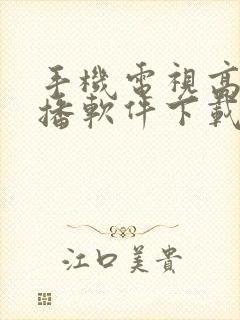 手機電視高
播軟件下載
江口美貴